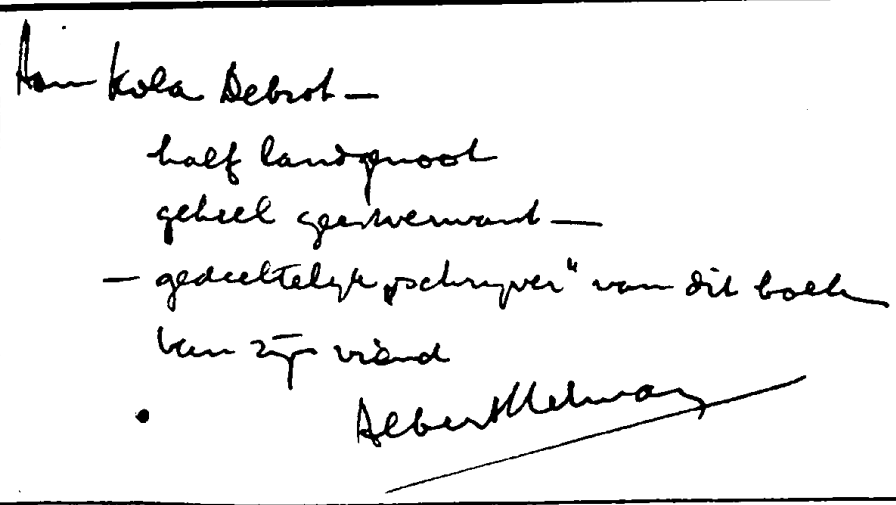 Aan Kola Debrot —
half landgenoot
geheel geestverwant —
— gedeeltelijk „schrijver" van dit boek
van zijn vriend
Albert Helman